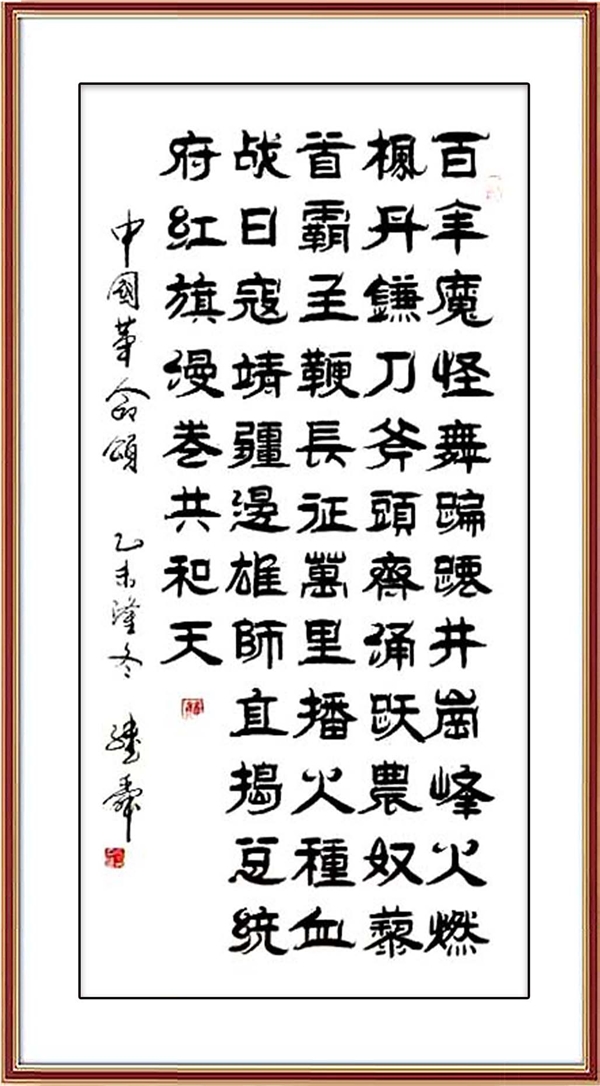 百年魔怪舞蹁躚井崗峰火燃
楓丹鐮刀斧頭齊踊跃農奴藜
首霸主鞭長征萬里播火種血
战日寇靖疆邊雄師直搗总統
府紅旗漫卷共和天
中國革命頌 乙未隆冬 继舜